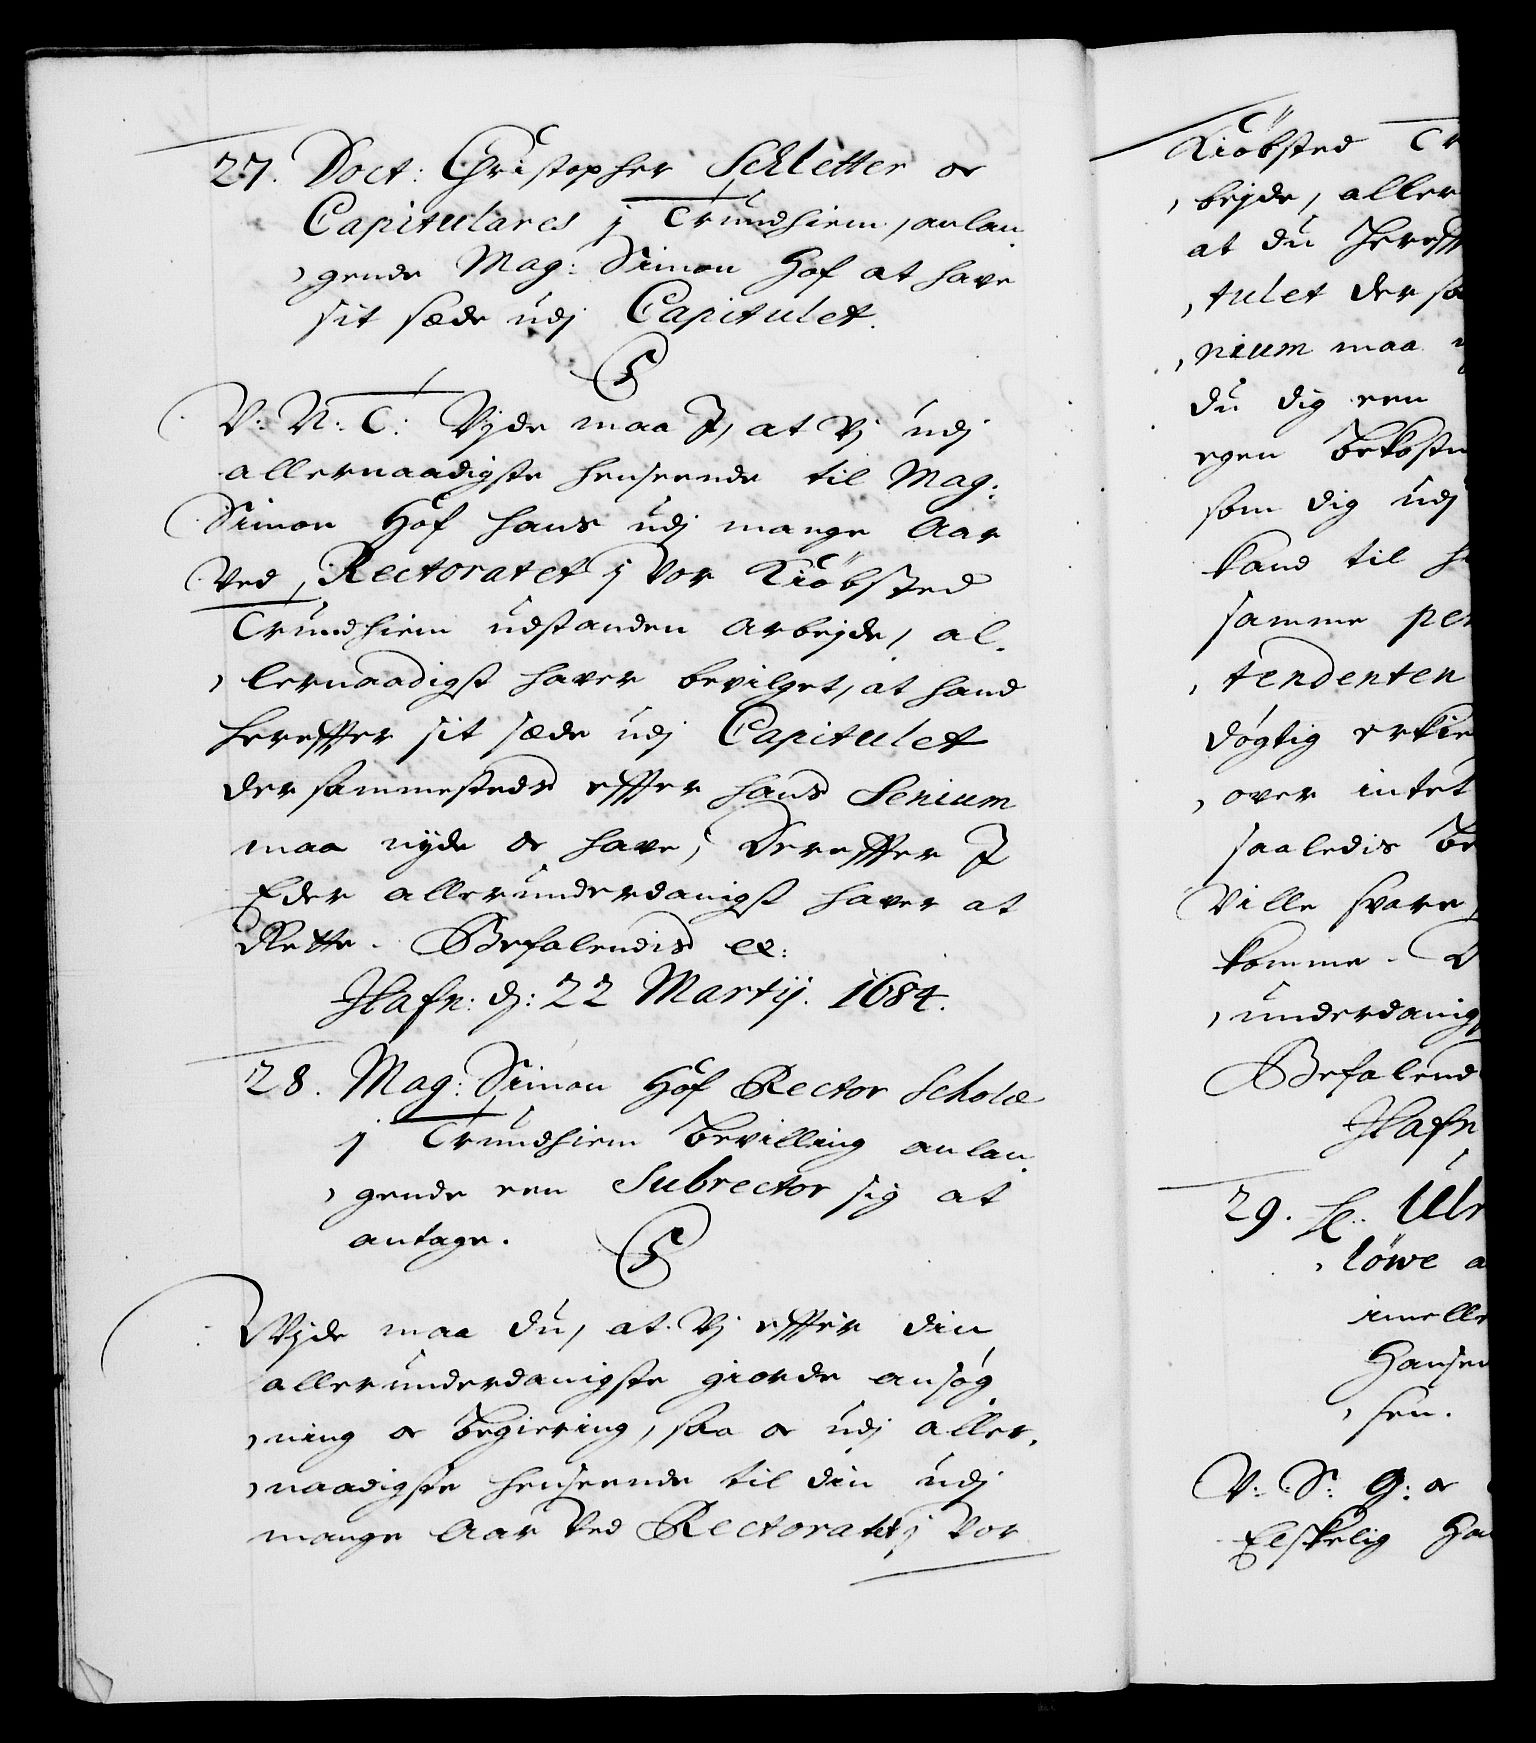 27. Doct: Christopher Schletter oc
Capitulares j Trundhiem, anlan
,gende Mag: Simon Hof at have
sit sæde udj Capitulet.
C5
V: N: T: Vyde maa J, at Vj udj
allernaadigste henseende til Mag:
Simon Hof hans udj mange Aar
Ved Rectoratet j Vor Kiöbsted
Trundhiem udstanden arbeyde, al,
,lernaadigst haver bevilget, at hand
hereffter sit sæde udj Capitulet
dersammesteds effter hans Senium
maa nyde oc have, Dereffter J
Eder allerunderdanigst haver at
Rette. Befalendis etc:
Hafn: d: 22 Martij. 1684.
28. Mag: Simon Hof Rector Scholæ
j Trundhiem Bevilling anlan
,gende een Subrector sig at
antage.
C5
Vyde maa du, at Vj effter din
allerunderdanigste giorde ansøg
,ning oc Begiering, saa oc udj aller,
,naadigste henseende til din udj
mange Aar Ved Rectoratet j Vor
Kiöbsted Tr
,beyde, aller
at du hereff
,tulet dersa
,nium maa
du dig een
egen Bekostn
som dig udj
kand til
samme per
,tendenten
døgtig erkie
,over intet
saaledis Be
Ville svare
komme. D
,underdanig
Befalend
Hafn
29. Hr: Ulr
,löwe a
imelle
Hansen
,sen.
V: S: G: oc
Elskelig Ha